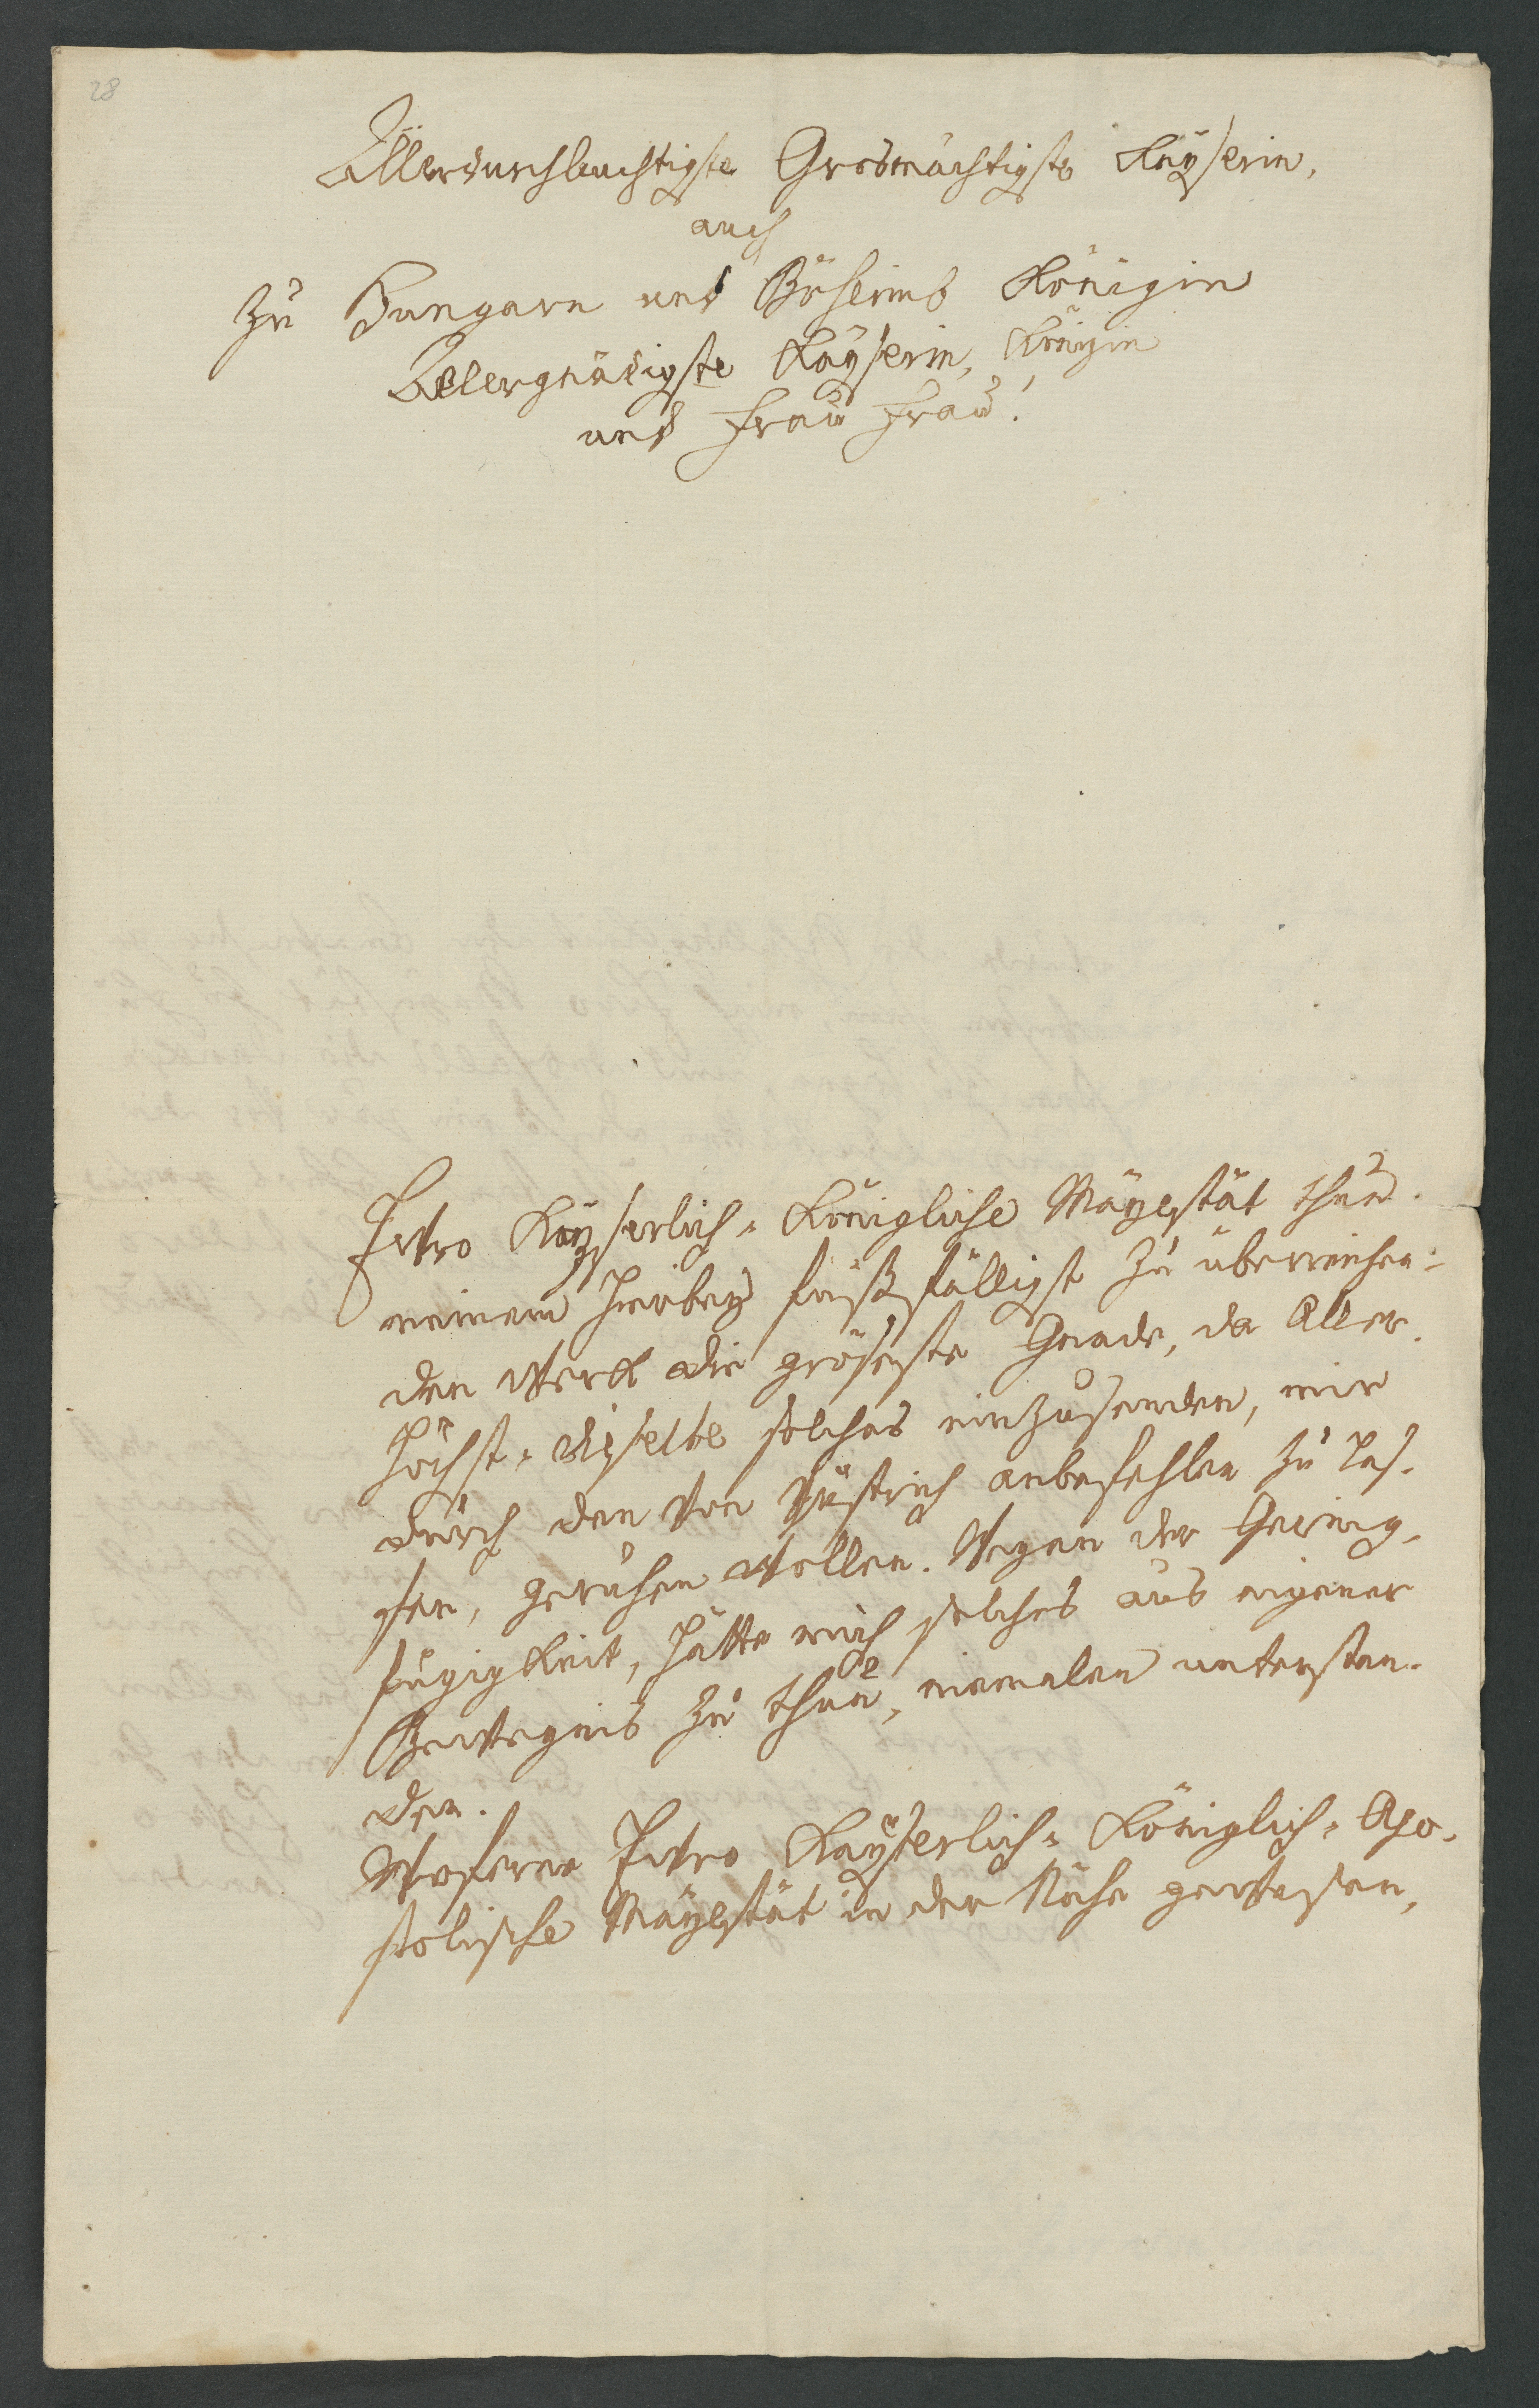 28
Allerdurchleuchtigste Grosmächtigste Kayserin,
auch
zu Hungarn und Böheimb Königin
Allergnädigste Kayserin, Königin
und Frau Frau!
Ewro Kayserlich-Königliche Mayestät thun
meinem hierbey fusfälligst zu überreichen-
den Werk die gröseste Gnade, da Aller-
höchst-dieselbe solches einzusenden, mir
durch den von anbefehlen zu las-
sen, geruhen wollen. Wegen der Gering-
fügigkeit, hätte mich solches aus eigener
Bewegnis zu thun, niemalen unterstan-
den.
Woferne Ewro Kayserlich-Königlich-Apo-
stolische Mayestät in der Nähe gewesen,